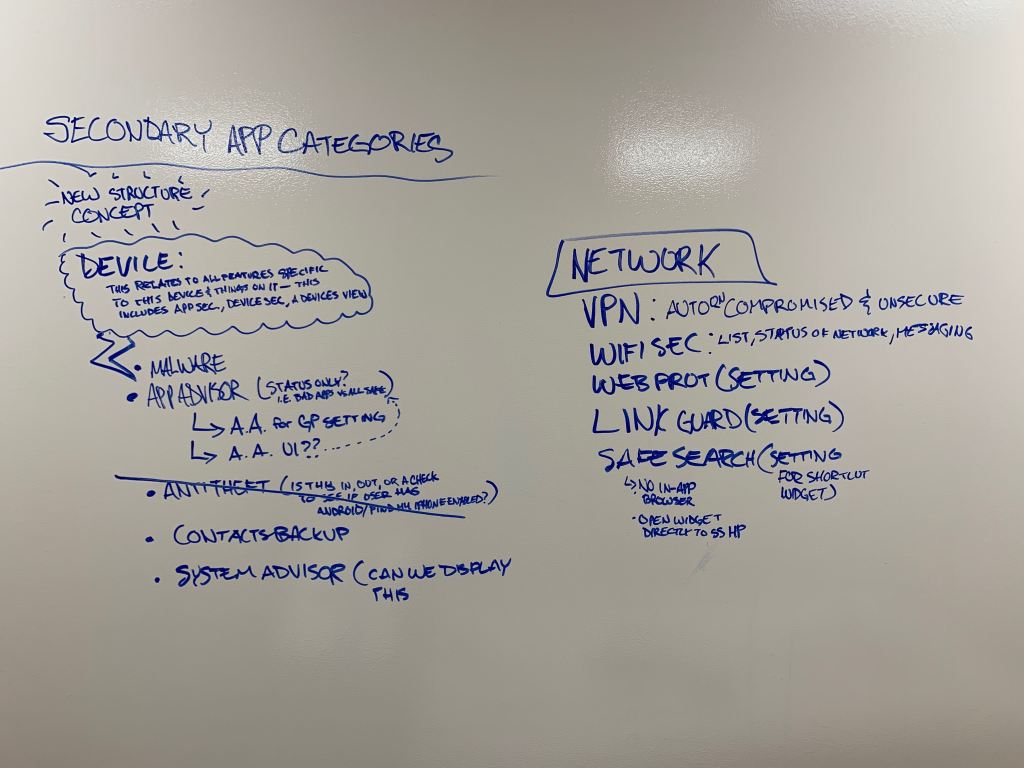 SECONDARY APP CATEGORIES
NEW STRUCTURE
CONCEPT
DEVICE:
THIS RELATES TO ALL FEATURES SPECIFIC
TO THIS DEVICE & THINGS ON IT — THIS
INCLUDES APP SEC., DEVICE SEC, A DEVICES VIEW
• MALWARE
• APP ADVISOR (STATUS ONLY?
I.E. BAD APPS VS ALL SAFE)
↳ A.A. for GP SETTING
↳ A.A. UI??
• ANTITHEFT (IS THIS IN, OUT, OR A CHECK
TO SEE IF USER HAS
ANDROID/FIND MY IPHONE ENABLED?)
• CONTACTS BACKUP
• SYSTEM ADVISOR (CAN WE DISPLAY
THIS
NETWORK
VPN: AUTO ON COMPROMISED & UNSECURE
WIFI SEC: LIST, STATUS OF NETWORK, MESSAGING
WEB PROT (SETTING)
LINK GUARD (SETTING)
SAFE SEARCH (SETTING
FOR SHORTCUT
WIDGET)
↳ NO IN-APP
BROWSER
• OPEN WIDGET
DIRECTLY TO SS HP